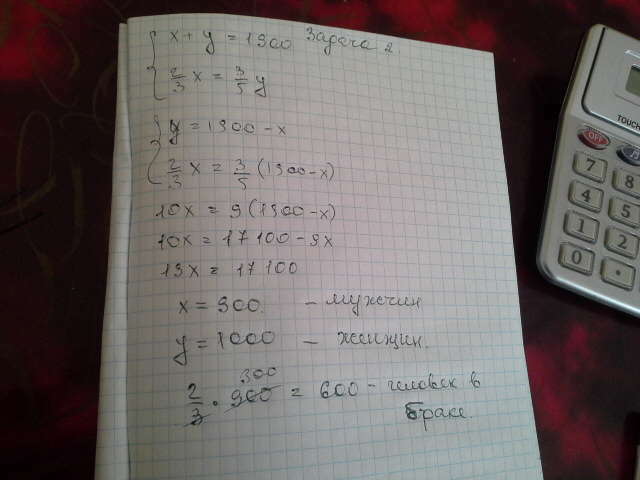 x + y = 1900 Задача 2.
2/3 x = 3/5 y
y = 1900 - x
2/3 x = 3/5 (1900 - x)
10x = 9(1900 - x)
10x = 17100 - 9x
19x = 17100
x = 900. - мужчин
y = 1000 - женщин.
300
2/3 · 900 = 600 - человек в
браке.
TOUCH
OFF
7 8
4 5
1 2
0 ·